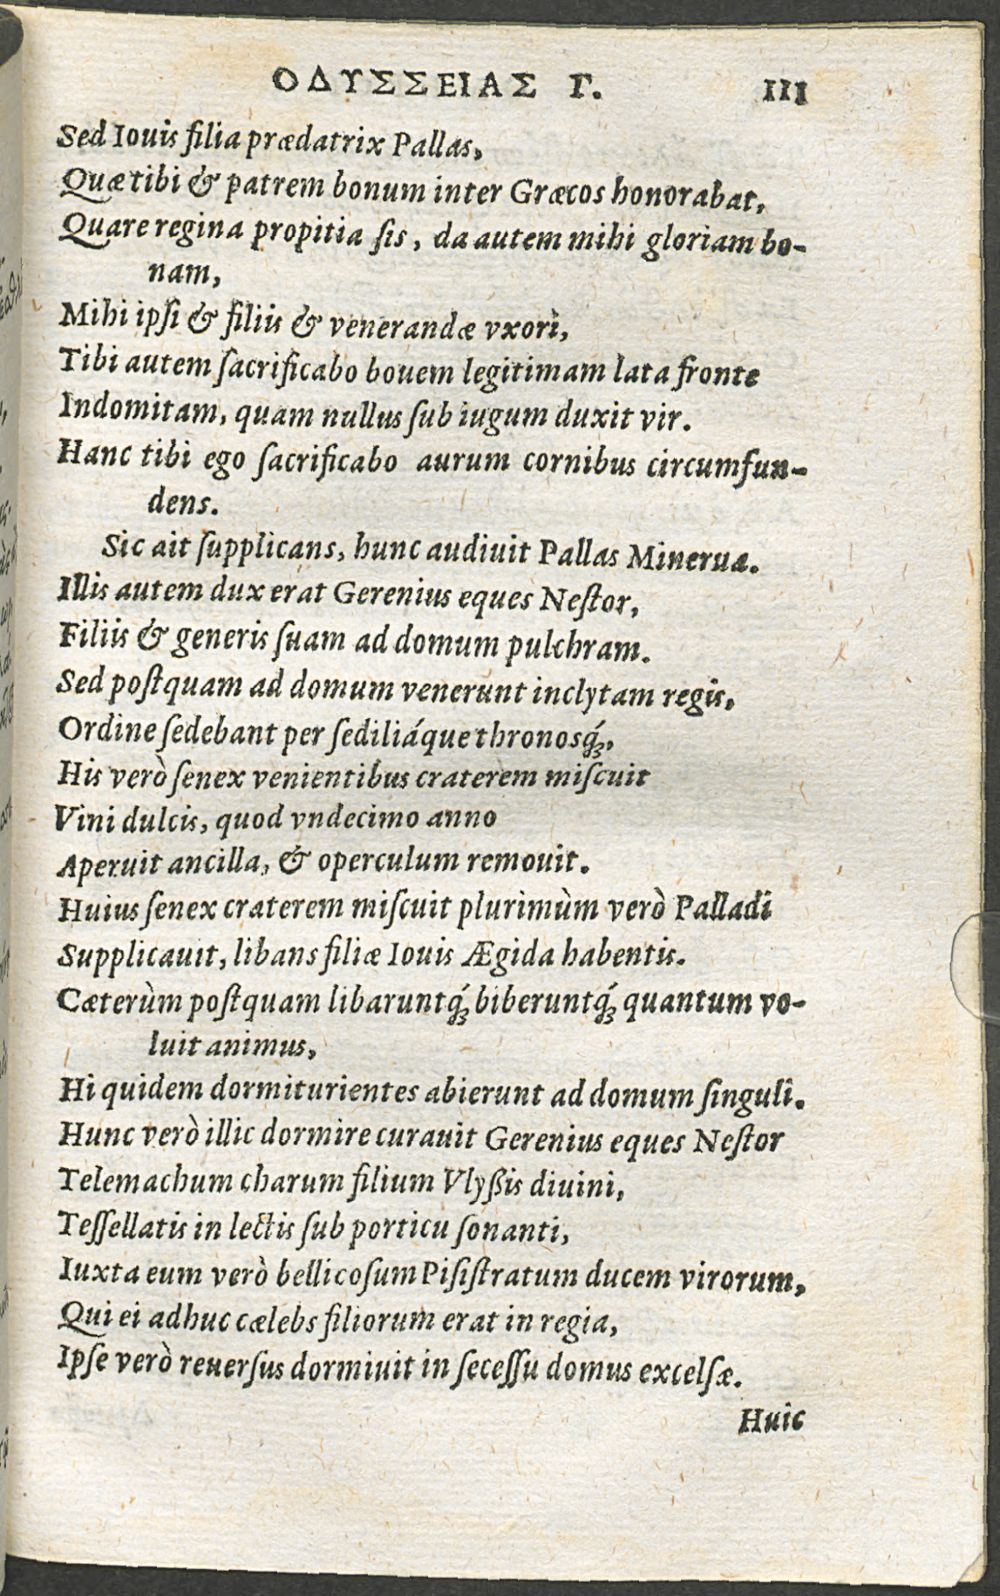 ΟΔΥΣΣΕΙΑΣ Γ. 111
Sed Iouis filia prædatrix Pallas,
Quæ tibi & patrem bonum inter Græcos honorabat,
Quare regina propitia ſis, da autem mihi gloriam bo-
nam,
Mihi ipſi & filiis & venerandæ vxori,
Tibi autem ſacrificabo bouem legitimam lata fronte
Indomitam, quam nullus ſub iugum duxit vir.
Hanc tibi ego ſacrificabo aurum cornibus circumfun-
dens.
Sic ait ſupplicans, hunc audiuit Pallas Minerua.
Illis autem dux erat Gerenius eques Neſtor,
Filiis & generis ſuam ad domum pulchram.
Sed poſtquam ad domum venerunt inclytam regis,
Ordine ſedebant per ſediliáque thronosq́;,
His verò ſenex venientibus craterem miſcuit
Vini dulcis, quod vndecimo anno
Aperuit ancilla, & operculum remouit.
Huius ſenex craterem miſcuit plurimùm verò Palladi
Supplicauit, libans filiæ Iouis Ægida habentis.
Cæterùm poſtquam libaruntq́; biberuntq́; quantum vo-
luit animus,
Hi quidem dormiturientes abierunt ad domum ſinguli.
Hunc verò illic dormire curauit Gerenius eques Neſtor
Telemachum charum filium Vlyßis diuini,
Teſſellatis in lectis ſub porticu ſonanti,
Iuxta eum verò bellicoſum Piſiſtratum ducem virorum,
Qui ei adhuc cælebs filiorum erat in regia,
Ipſe verò reuerſus dormiuit in ſeceſſu domus excelſæ.
Huic